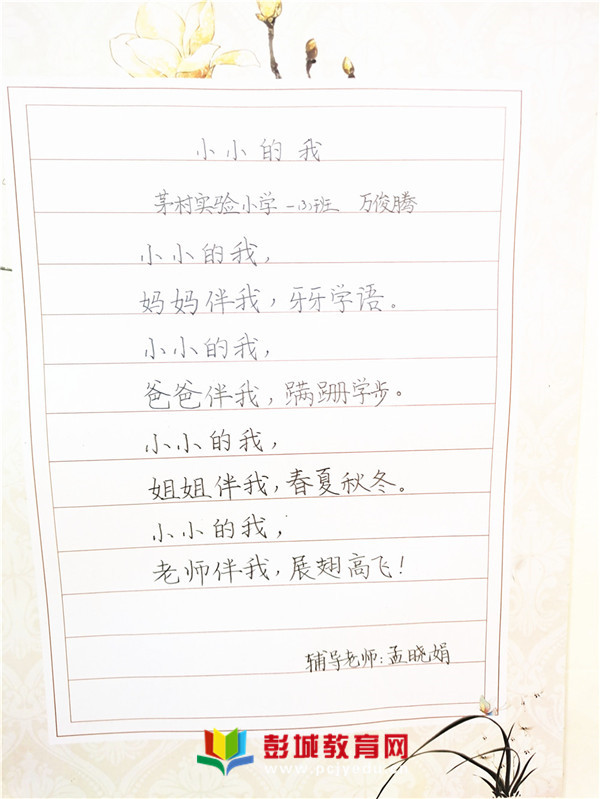 小小的我
茅村实验小学 一(3)班 万俊腾
小小的我，
妈妈伴我，牙牙学语。
小小的我，
爸爸伴我，蹒跚学步。
小小的我，
姐姐伴我，春夏秋冬。
小小的我，
老师伴我，展翅高飞！
辅导老师：孟晓娟
彭城教育网